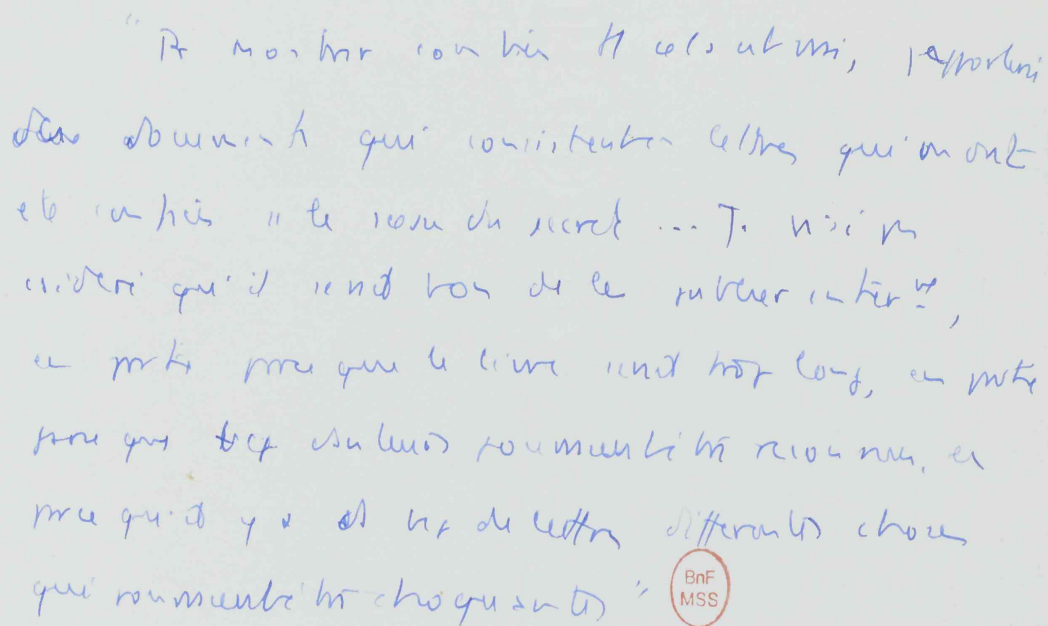 "Pr montrer combien il cela est vrai, j'apporterai
des documents qui consistent en lettres qui m'ont
été confiées sous le sceau du secret ... Je n'ai pas
considéré qu'il serait bon de les publier entièrt,
en partie parce que le livre serait trop long, en partie
parce que les auteurs pourraient être reconnus, et
parce qu'il y a ds les de lettres différentes choses
qui pourraient être choquantes"
BnF
MSS